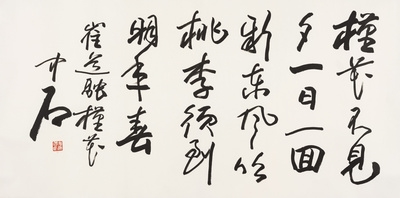 槿花不见
夕一日一回
新东风吹
桃李须到
明年春
崔道融槿花
中石